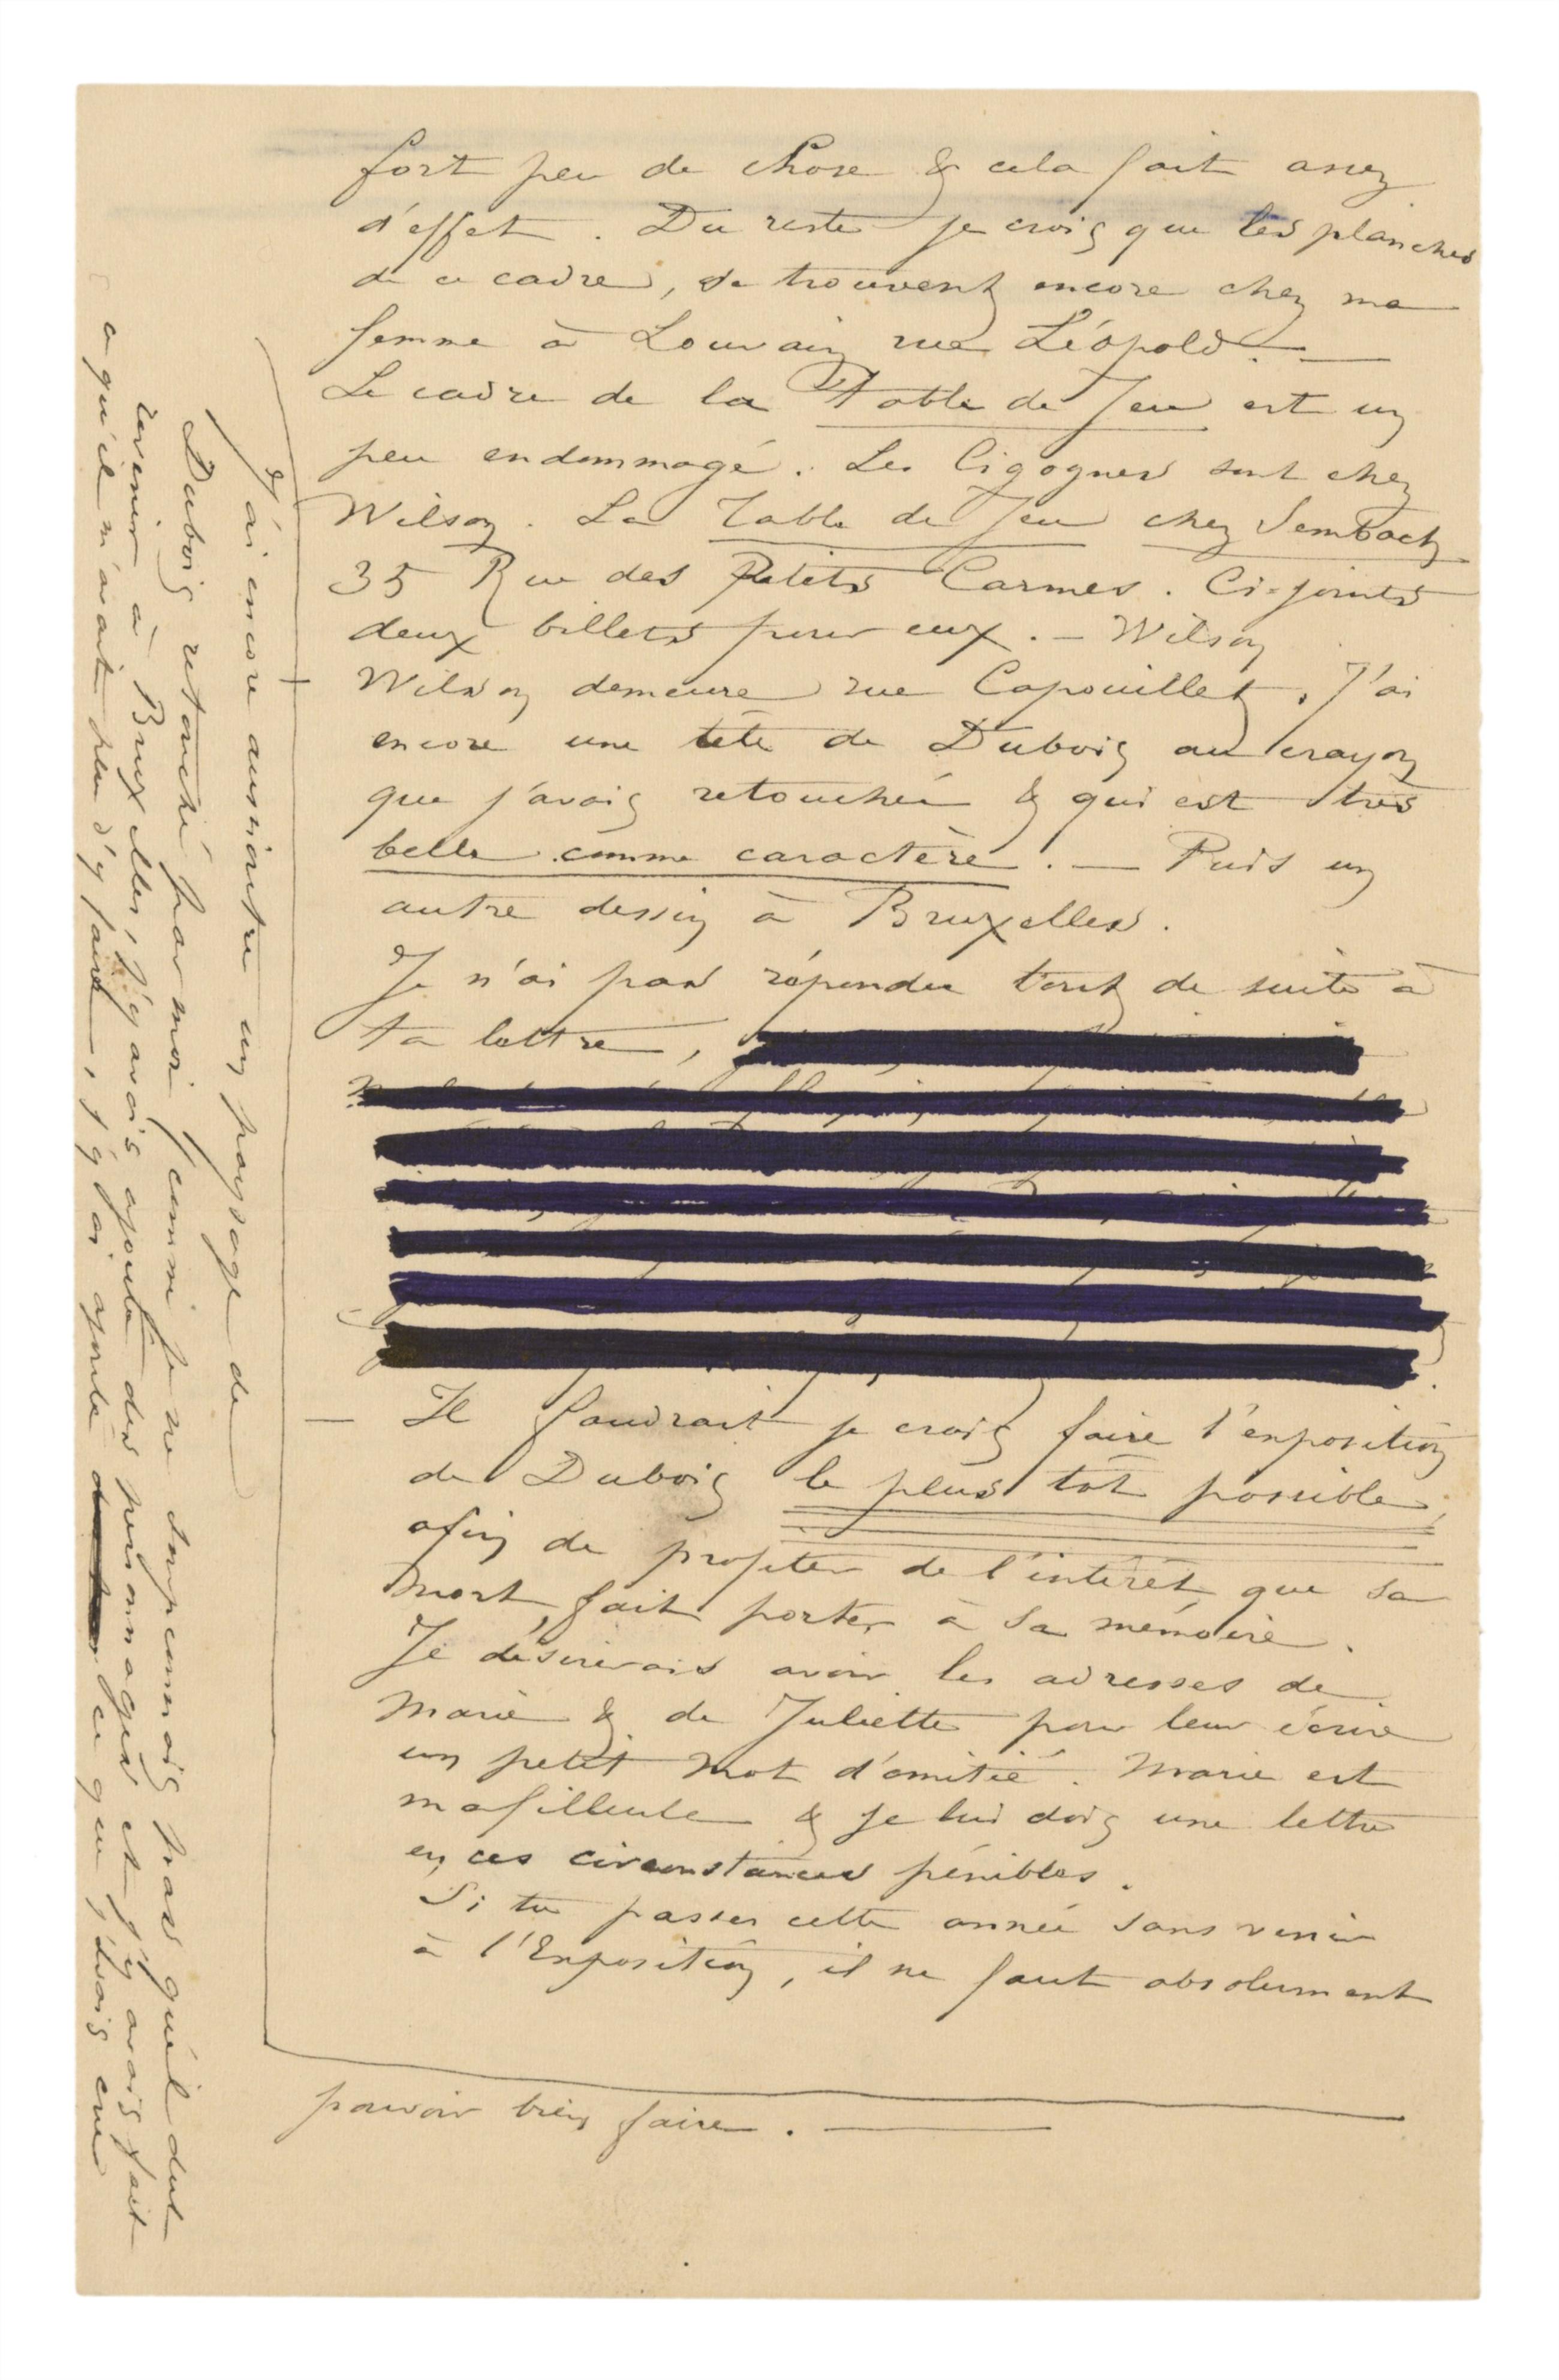 fort peu de chose & cela fait assez
d'effet. Du reste je crois que les planches
de ce cadre, se trouvent encore chez ma
femme à Louvain rue Léopold. —
Le cadre de la Table de Jeu est un
peu endommagé. Les Cigognes sont chez
Wilson. La Table de Jeu chez Sembach
35 Rue des Petits Carmes. Ci-joints
deux billets pour eux. — Wilson
Wilson demeure rue Capouillet. J'ai
encore une tête de Dubois au crayon
que j'avais retouchée & qui est très
belle comme caractère. — Puis un
autre dessin à Bruxelles.
Je n'ai pas répondu tout de suite à
ta lettre,
— Il faudrait je crois faire l'exposition
de Dubois le plus tôt possible,
afin de profiter de l'intérêt que sa
mort fait porter à sa mémoire.
Je désirerais avoir les adresses de
Marie & de Juliette pour leur écrire
un petit mot d'amitié. Marie est
ma filleule & je lui dois une lettre
en ces circonstances pénibles.
Si tu passes cette année sans venir
à l'Exposition, il ne faut absolument
J'ai encore aussi outre un paysage de
Dubois retouché par moi, comme je ne soupçonnais pas qu'il dut
revenir à Bruxelles, j'y avais ajouté des personnages et j'y avais fait
ce qu'il m'avait plu d'y faire, j'y ai ajouté ce que j'avais cru
pouvoir bien faire. —